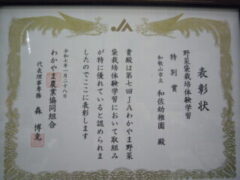 表彰状
野菜袋栽培体験学習
特別賞
和歌山市立 和佐幼稚園 殿
貴殿は第七回JAわかやま野菜
袋栽培体験学習において取組み
が特に優れていると認められま
したのでここに表彰します
令和七年一月二十八日
わかやま農業協同組合
代表理事専務 森 博